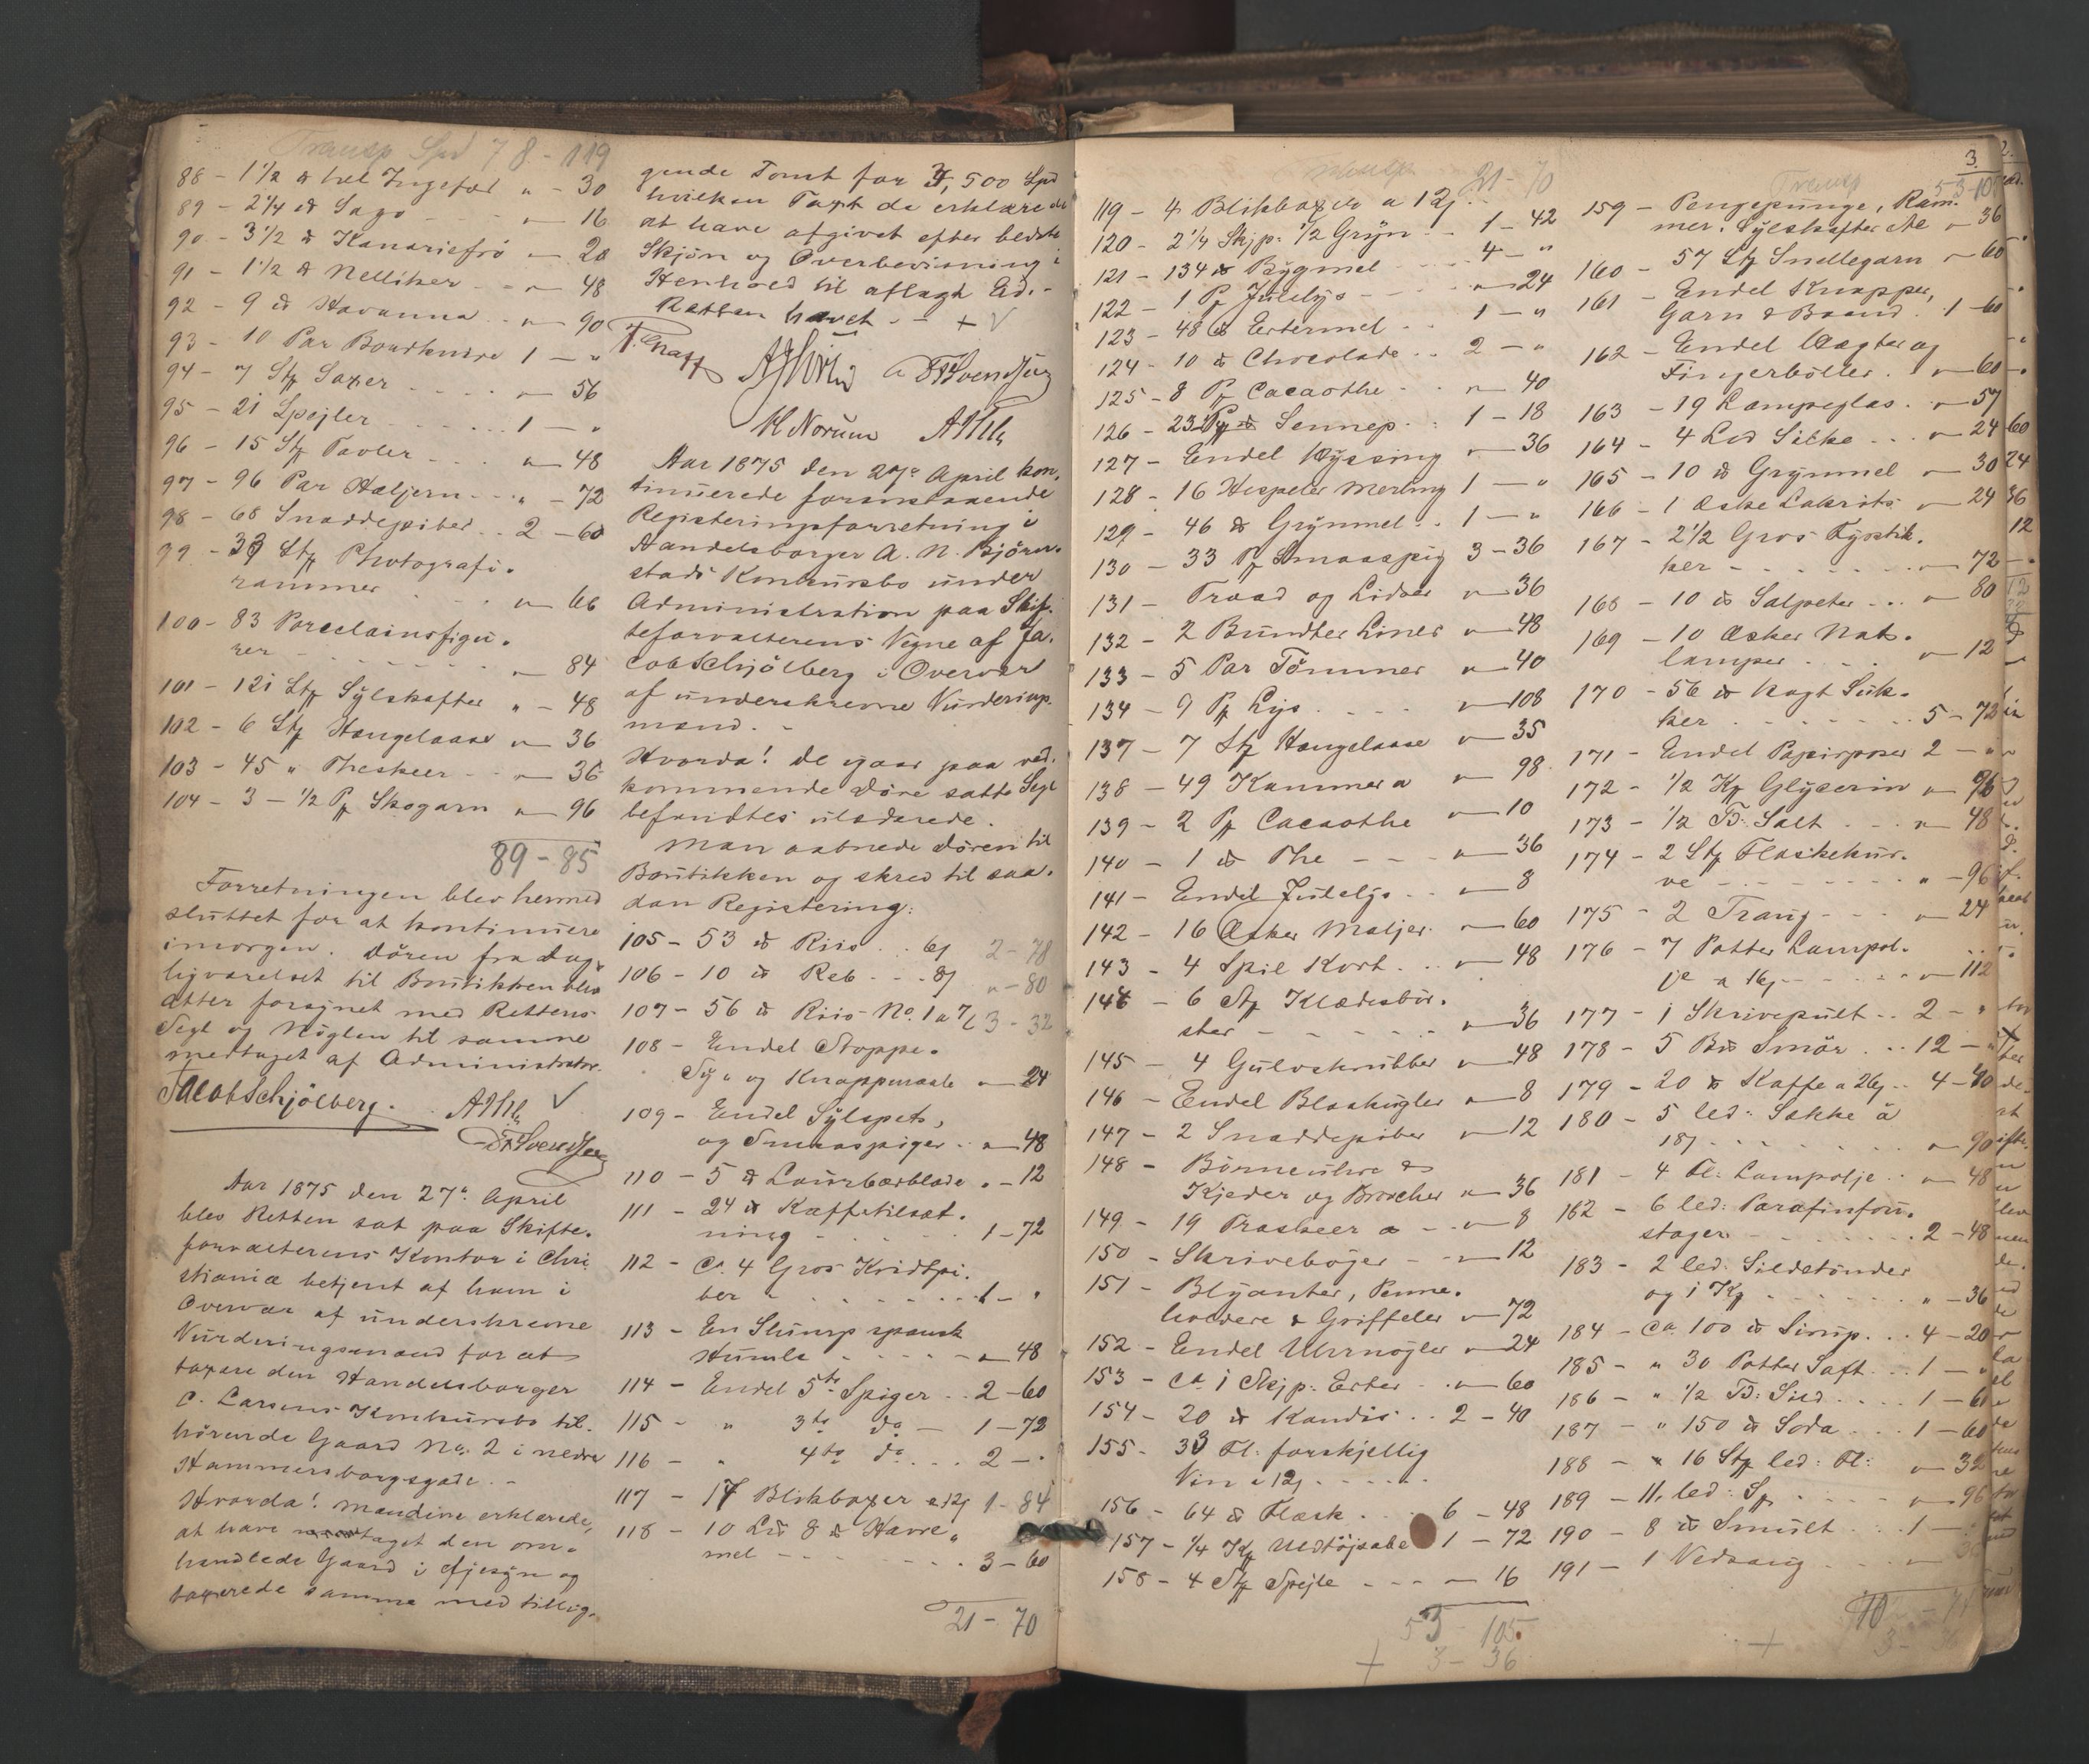 Transp Spd 78 - 119
88 - 1 1/2 ℔ hel Ingefær " - 30
89 - 2 1/4 ℔ Sago - - - " - 16
90 - 3 1/2 ℔ Kanariefrö " - 20
91 - 1 1/2 ℔ Nelliker - - " - 48
92 - 9 ℔ Havanna - " - 90
93 - 10 Par Bordknive 1 - "
94 - 7 Stk Saxer - - - " - 56
95 - 21 Speiler - - - - 1 - "
96 - 15 Stk Tavler - - - " - 48
97 - 96 Par Hæljern - - " - 72
98 - 68 Snaddepiber - - 2 - 60
99 - 39 Stk Photografi-
rammer - - - " - 66
100 - 83 Porcelainsfigu-
rer - - - - - " - 84
101 - 121 Stk Sylskafter " - 48
102 - 6 Stk Hængelaase " - 36
103 - 45 " Theskeer - - " - 36
104 - 3 - 1/2 Pk Skogarn " - 96
89 - 85
Forretningen blev hermed
sluttet for at kontinuere
imorgen. Dören fra Dag-
ligværelset til Boutikken blev
atter forsynet med Rettens
Segl og Nöglen til samme
medtaget af Administrator.
Jacob Schjölberg.
Aar 1875 den 27de April
blev Retten sat paa Skifte-
forvalterens Kontor i Chri-
stiania betjent af ham i
Overvær af underskrevne
Vurderingsmænd for at
taxere den Handelsborger
C. Larsens Konkursbo til-
hörende Gaard No. 2 i nedre
Hammersborgsgade. -
Hvorda! Mændene erklærede,
at have taget den om-
handlede Gaard i Øjesyn og
taxerede samme med tillig-
gende Tomt for 3,500 Spd
hvilken Taxt de erklærede
at have afgivet efter bedste
Skjön og Overbevisning i
Henhold til aflagt Ed. -
Retten hævet - - +
H Norum
Aar 1875 den 27de April kon-
tinuerede foranstaaende
Registeringsforretning i
Handelsborger A. N. Björn-
stads Konkursbo under
Administration paa Skif-
teforvalterens Vegne af Ja-
cob Schjölberg i Overvær
af underskrevne Vurderings-
mænd. -
Hvorda! De igaar paa ved-
kommende Döre satte Segl
befandtes uskadte.
Man aabnede Dören til
Boutikken og skred til saa-
dan Registering:
105 - 53 ℔ Riis - - 6ß 2 - 78
106 - 10 ℔ Reb - - - 8ß " - 80
107 - 56 ℔ Riis No. 1 a 7ß 3 - 32
108 - Endel Stoppe-
Sy- og Knappenaale " - 24
109 - Endel Sylspets,
og Smaaspiger - - " - 48
110 - 5 ℔ Laurbærblade " - 12
111 - 24 ℔ Kaffetilsæt-
ning - - - - - 1 - 72
112 - Ca. 4 Gros Kridtpi-
ber - - - - - - 1 - "
113 - En Slump spansk
Humle - - - - - " - 48
114 - Endel 5te Spiger - - 2 - 60
115 - " 3te do - 1 - 72
116 - " 4te do - - - 2 - "
117 - 17 Blikboxer a 12ß 1 - 84
118 - 10 Lod 8 ℔ Havre-
mel - - - - - - 3 - 60
21 - 70
3.
Transp 21 - 70
119 - 4 Blikboxer a 12ß -
120 - 2 1/4 Skjp: 1/2 Gryn - - 1 - 42
121 - 134 ℔ Bygmel - - - 4 - "
122 - 1 Pk Julelys - - - " - 24
123 - 48 ℔ Ertermel - - 1 - "
124 - 10 ℔ Chocolade - - 2 - "
125 - 8 Pk Cacaothe - - " - 40
126 - 23 ℔ Sennep - : 1 - 18
127 - Endel Kyssing " - 36
128 - 16 Hespeler Merling 1 - "
129 - 46 ℔ Grynmel - - 1 - "
130 - 33 Pk Smaaspig 3 - 36
131 - Traad og Lidser " - 36
132 - 2 Bundter Liner " - 48
133 - 5 Par Tömmer " - 40
134 - 9 Pk Lys - - - - " - 108
137 - 7 Stk Hængelaase " - 35
138 - 49 Kammer a " - 98
139 - 2 Pk Cacaothe " - 10
140 - 1 ℔ The - - - " - 36
141 - Endel Julelys - - " - 8
142 - 16 Æsker Maljer - " - 60
143 - 4 Spil Kort - - - " - 48
144 - 6 Stk Klædesbör-
ster - - - - - " - 36
145 - 4 Gulvskrubber " - 48
146 - Endel Blaakugler " - 8
147 - 2 Snaddepiber " - 12
148 - Börneuhre &
Kjeder og Brocher " - 36
149 - 19 Træskeer a - " - 8
150 - Skriveböger - - " - 12
151 - Blyanter, Penne-
holdere & Griffeler " - 72
152 - Endel Uhrnögler " - 24
153 - Ca. 1 Skjp: Erter - - " - 60
154 - 20 ℔ Kandis - - 2 - 40
155 - 33 Fl: forskjellig
Vin a 12ß - - - - -
156 - 64 ℔ Flæsk - - - 6 - 48
157 - 1/4 Kp Uldtöjsæbe 1 - 72
158 - 4 Stk Spejle - - - " - 16
53 - 105
+ 3 - 36
Transp 53 - 105
159 - Pengepunge, Ram-
mer, Sylskafter etc " - 36
160 - 57 Stk Snellegarn " - 60
161 - Endel Knapper,
Garn & Baand - 1 - 60
162 - Endel Vægter og
Fingerböller - " - 60
163 - 19 Lampeglas - " - 57
164 - 4 Lod Silke - - - " - 24
165 - 10 ℔ Grynmel " - 30
166 - 1 Æske Lakrits " - 24
167 - 2 1/2 Gros Fyrstik-
ker - - - - - - " - 72
168 - 10 ℔ Salpeter - - - " - 80
169 - 10 Æsker Nat-
lamper - - - " - 12
170 - 56 ℔ kogt Suk-
ker - - - - - - 5 - 72
171 - Endel Papirposer 2 - "
172 - 1/2 Kp Glyserin " - 96
173 - 1/2 Td: Salt - - - " - 48
174 - 2 Stk Flaskekur-
ve - - - - - - " - 96
175 - 2 Traug - - - " - 24
176 - 7 Potter Lampol-
je a 16ß - - - - " - 112
177 - 1 Skrivepult - - 2 - "
178 - 5 Bd Smör - - - 12 - "
179 - 20 ℔ Kaffe a 26ß - - 4 - 40
180 - 5 led: Sække à
18ß - - - - - " - 90
181 - 4 Fl: Lampolje - - " - 48
182 - 6 led: Parafinfou-
stager - - - - - - 2 - 48
183 - 2 led: Sildetönder
og 1 Kg - - - - - " - 36
184 - Ca. 100 ℔ Sirup - - 4 - 20
185 - " 30 Potter Saft - - 1 - "
186 - " 1/2 Td: Sild - - - - 1 - 60
187 - " 150 ℔ Soda - - - 1 - 60
188 - " 16 Stk led: Fl: " - 32
189 - 11 led: Sp - - - - " - 96
190 - 8 ℔ Smult - - - - 1 -
191 - 1 Vedsaug - - - - "